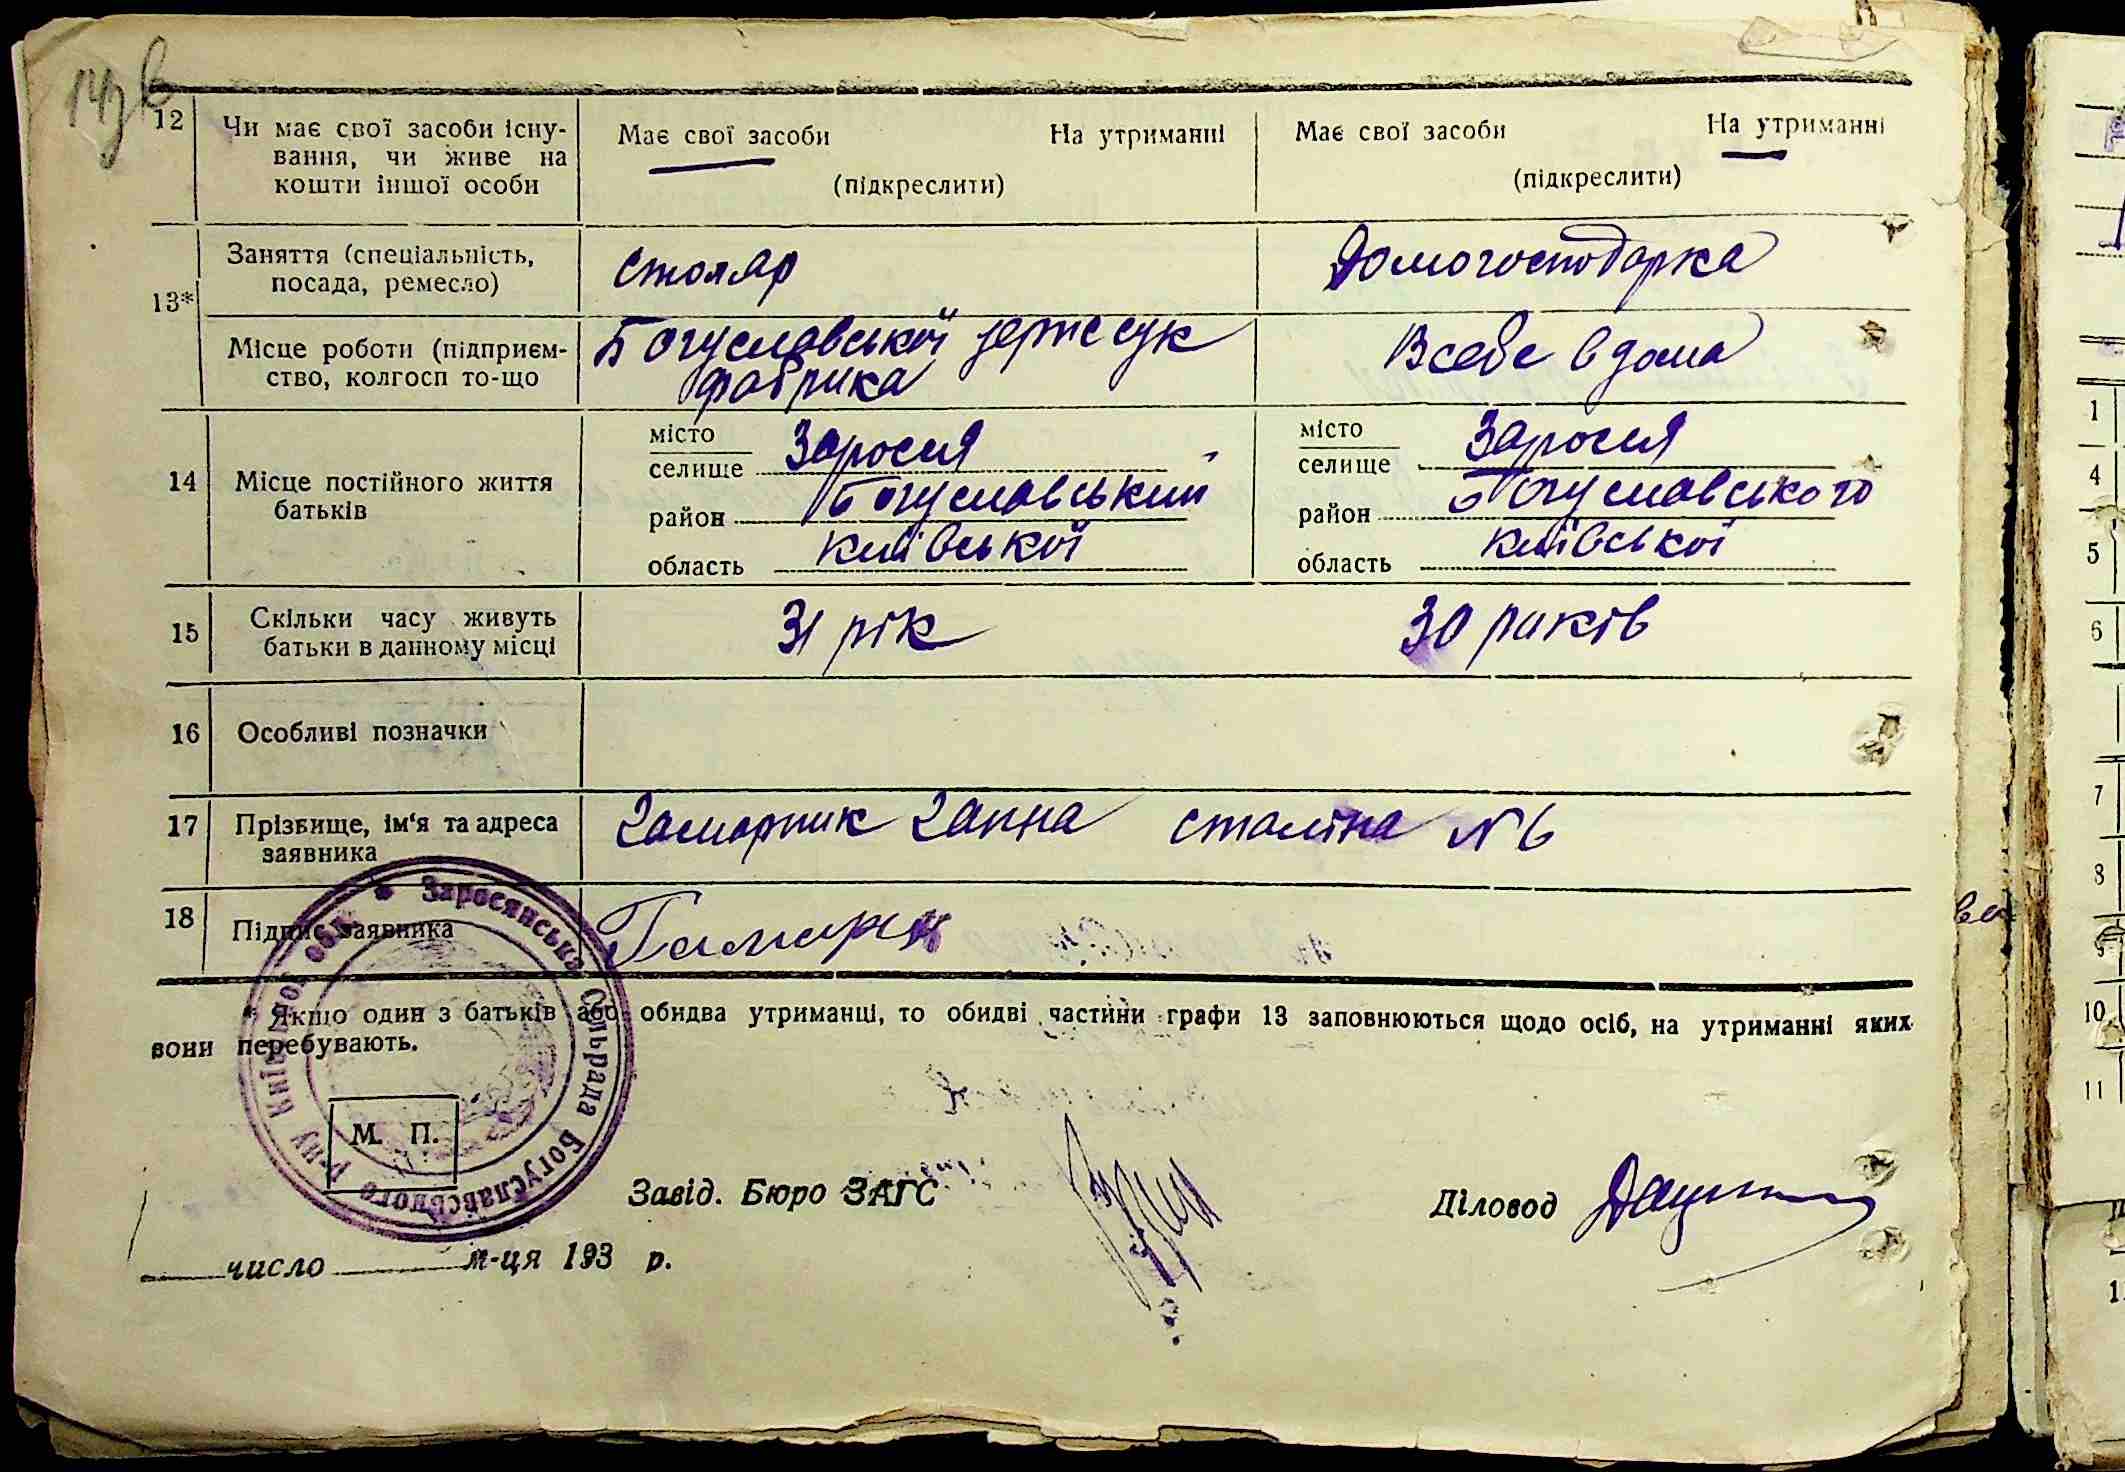 12 Чи має свої засоби існу-
вання, чи живе на
кошти іншої особи
Має свої засоби На утриманні
(підкреслити)
Має свої засоби На утриманні
(підкреслити)
13*
Заняття (спеціальність,
посада, ремесло)
столяр
Домогосподарка
Місце роботи (підприєм-
ство, колгосп то-що
Богуславської держ сук
фабрика
В себе в дома
14 Місце постійного життя
батьків
місто
селище Заросся
район Богуславський
область київської
місто
селище Заросся
район Богуславського
область київської
15 Скільки часу живуть
батьки в данному місці
31 рік
30 раків
16 Особливі позначки
17 Прізвище, ім'я та адреса
заявника
Гамарник Ганна сталіна № 6
18 Підпис заявника
Гамарн
* Якщо один з батьків або обидва утриманці, то обидві частини графи 13 заповнюються щодо осіб, на утриманні яких
вони перебувають.
Заросянська Сільрада Богуславського р-ну Київської обл.
М. П.
Завід. Бюро ЗАГС
Діловод
число м-ця 193 р.
1
4
5
6
7
8
9
10
11